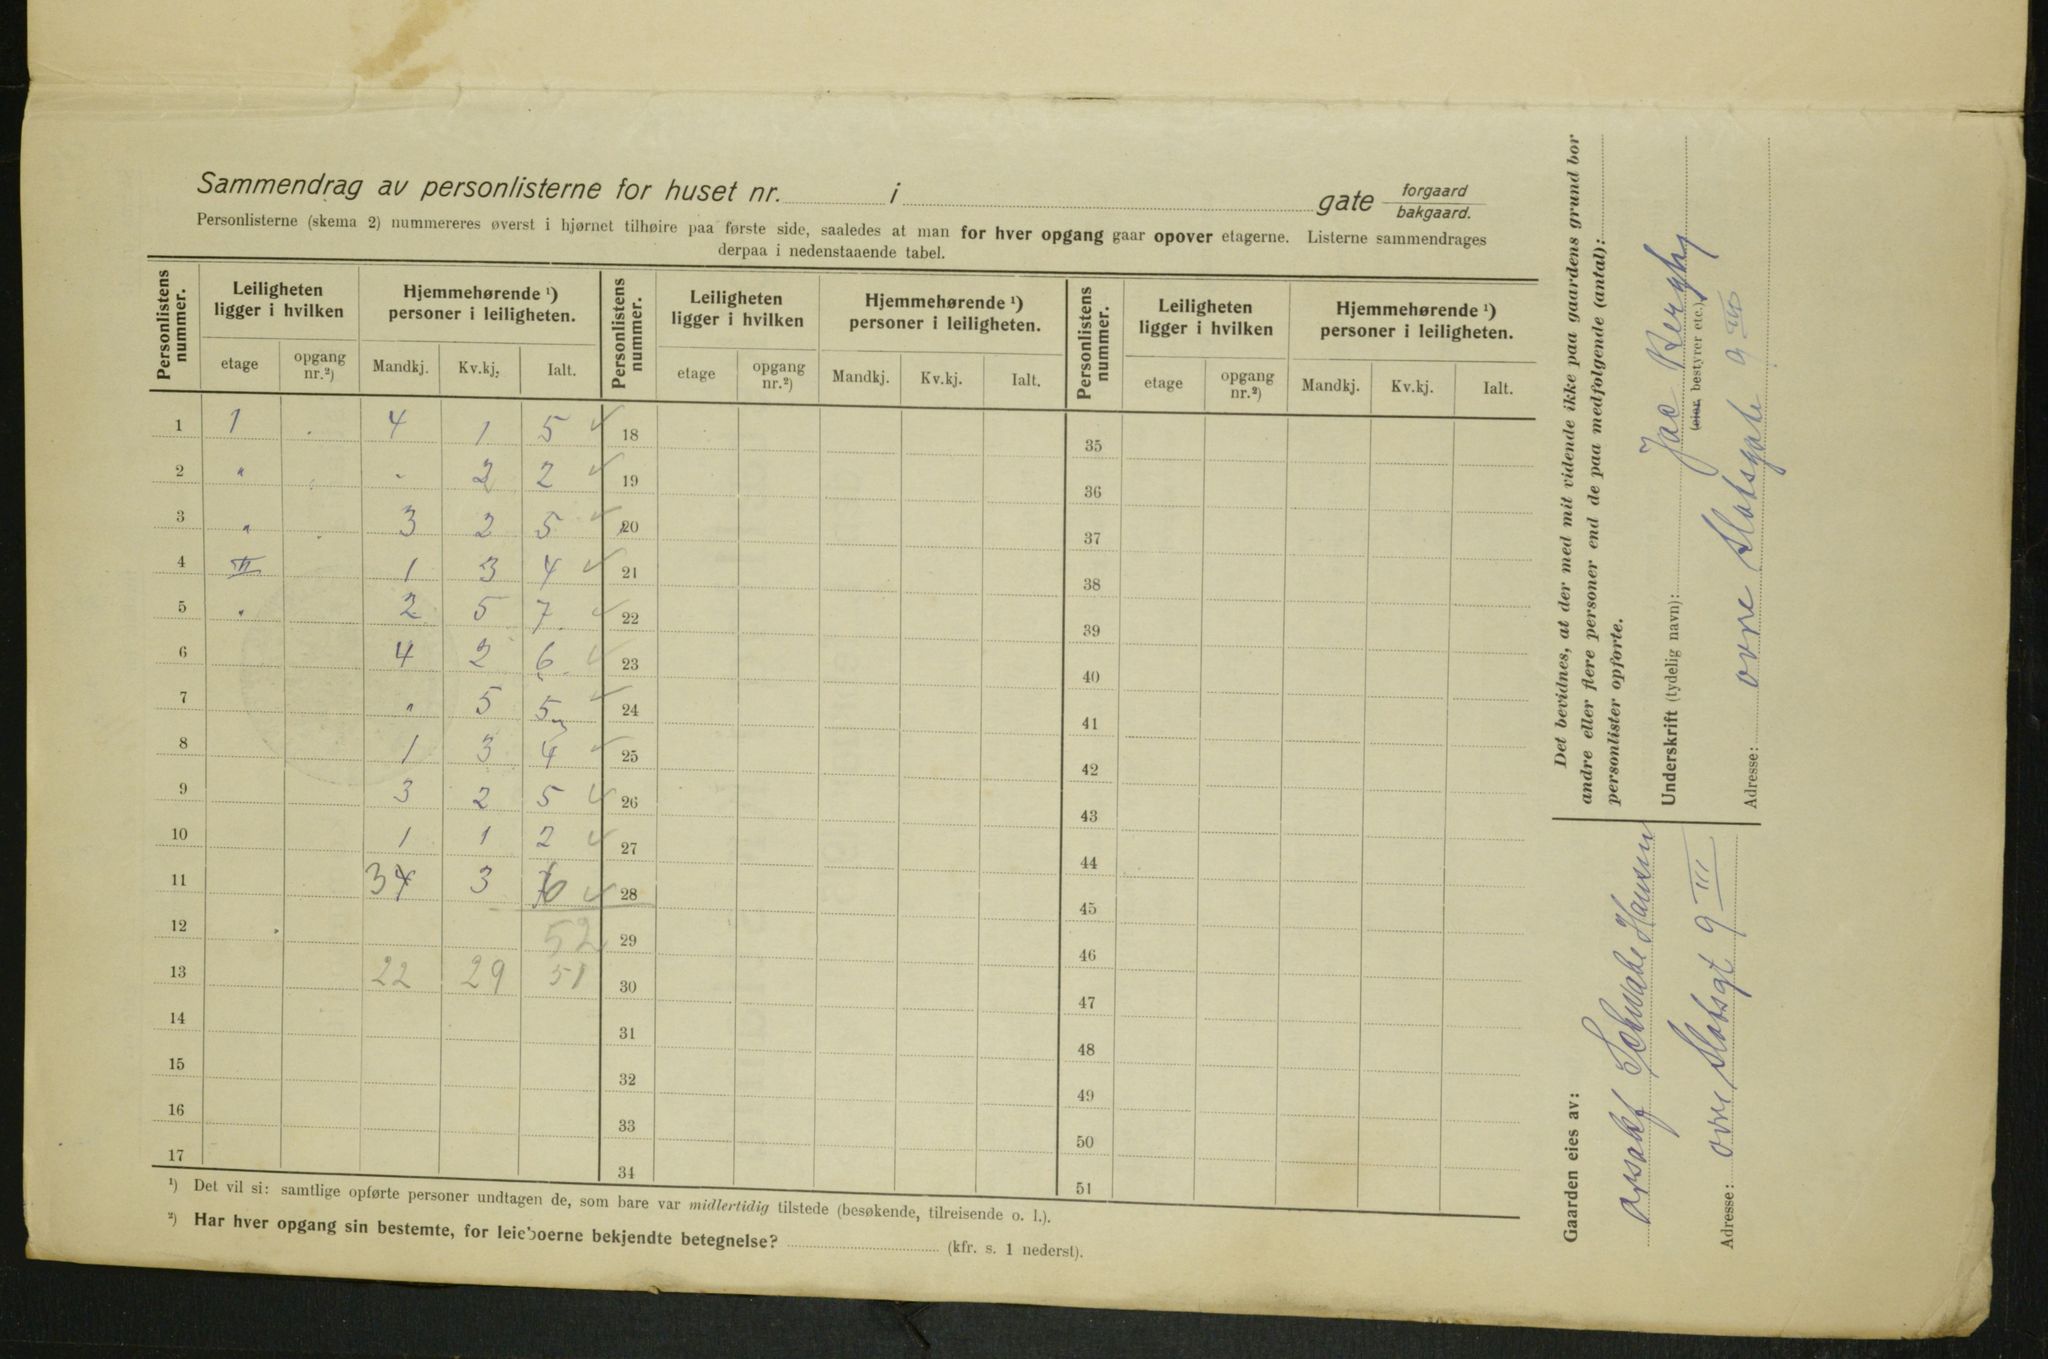 Sammendrag av personlisterne for huset nr. i gate forgaard bakgaard.
Personlisterne (skema 2) nummereres øverst i hjørnet tilhøire paa første side, saaledes at man for hver opgang gaar opover etagerne. Listerne sammendrages
derpaa i nedenstaaende tabel.
Personlistens nummer. Leiligheten ligger i hvilken Hjemmehørende ¹) personer i leiligheten. Personlistens nummer. Leiligheten ligger i hvilken Hjemmehørende ¹) personer i leiligheten. Personlistens nummer. Leiligheten ligger i hvilken Hjemmehørende ¹) personer i leiligheten.
etage opgang nr.²) Mandkj. Kv.kj. Ialt. etage opgang nr.²) Mandkj. Kv.kj. Ialt. etage opgang nr.²) Mandkj. Kv.kj. Ialt.
1 1 4 1 5 18 35
2 " - 2 2 19 36
3 " 3 2 5 20 37
4 II 1 3 4 21 38
5 " 2 5 7 22 39
6 4 2 6 23 40
7 " 5 5 24 41
8 1 3 4 25 42
9 3 2 5 26 43
10 1 1 2 27 44
11 3 3 6 28 45
12 52 29 46
13 22 29 51 30 47
14 31 48
15 32 49
16 33 50
17 34 51
¹) Det vil si: samtlige opførte personer undtagen de, som bare var midlertidig tilstede (besøkende, tilreisende o. l.).
²) Har hver opgang sin bestemte, for leieboerne bekjendte betegnelse? (kfr. s. 1 nederst).
Det bevidnes, at der med mit vidende ikke paa gaardens grund bor
andre eller flere personer end de paa medfølgende (antal):
personlister opførte.
Underskrift (tydelig navn): Jac Bergby
(eier, bestyrer etc.)
Adresse: øvre Slotsgate 9 III
Gaarden eies av:
Schwabe Hansen
Adresse: øvre Slotsgt 9 III